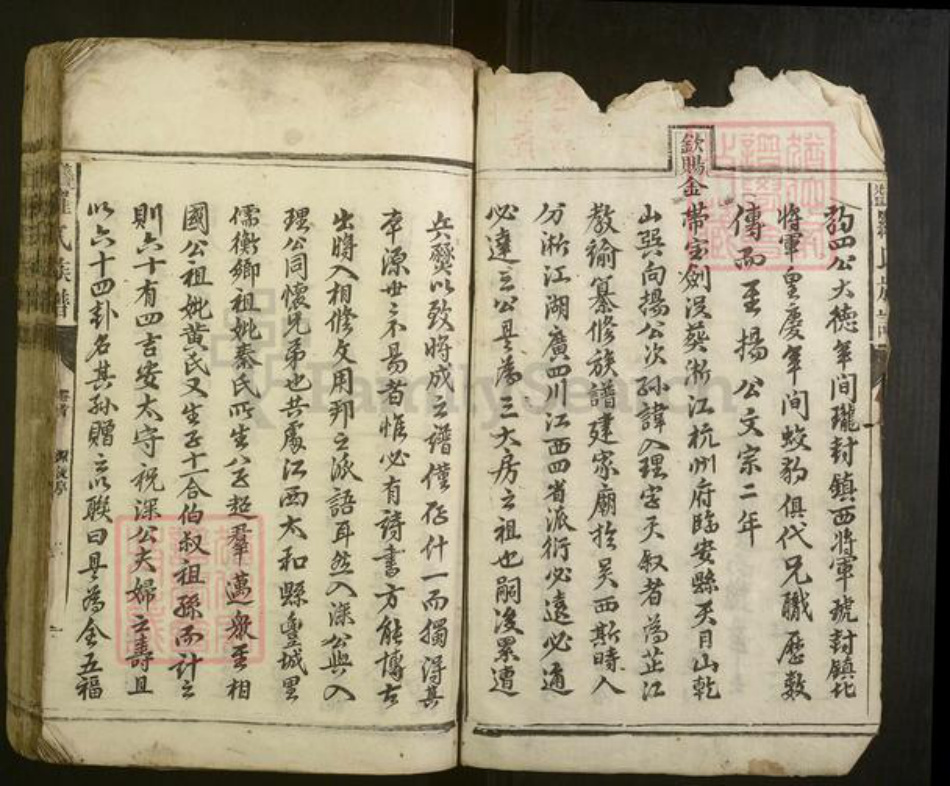 豹四公大德年間瓏封鎮西將軍號封鎮北
將軍皇慶年間蛟豹俱代兄職歷數
傳而至揚公文宗二年
欽賜金
帶宝劍没葵淅江杭州府臨安縣天目山乾
山巽向揚公次孫諱入理字天叙者為芷江
教諭纂修族譜建家廟扵吴西斯時人
分淅江湖廣四川江西四省派衍必遠必通
必達三公是為三大房之祖也嗣後累遭
兵燹以致將成之譜僅存什一而獨得其
卒源世世不易者惟必有詩書方能博古
出將入相修文用邦之派語耳然入深公與入
理公同懷兄弟也共處江西太和縣豊城里
儒衡鄉祖妣秦氏所生八子超羣邁衆至相
國公祖妣黄氏又生子十一合伯叔祖孫而計之
則六十有四吉安太守祝深公夫婦之壽且
以六十四卦名其孫贈之以聯曰是為全五福
氏族譜
FamilySearch